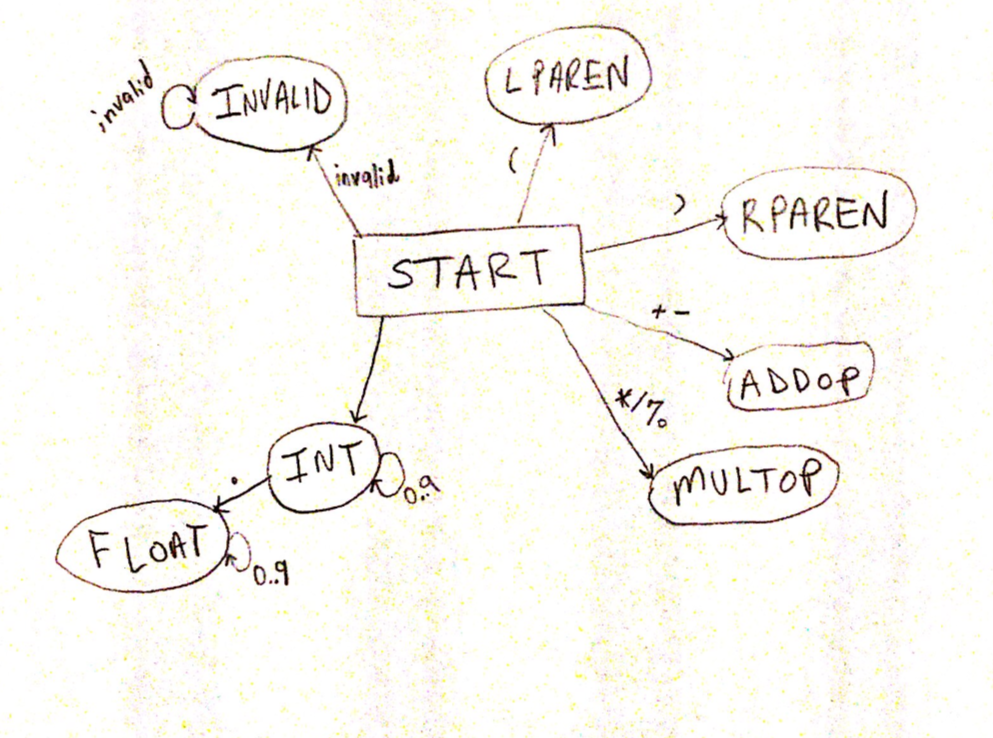 invalid
INVALID
LPAREN
invalid
(
)
RPAREN
START
+ -
ADDOP
*/%
MULTOP
INT
0..9
.
FLOAT
0..9